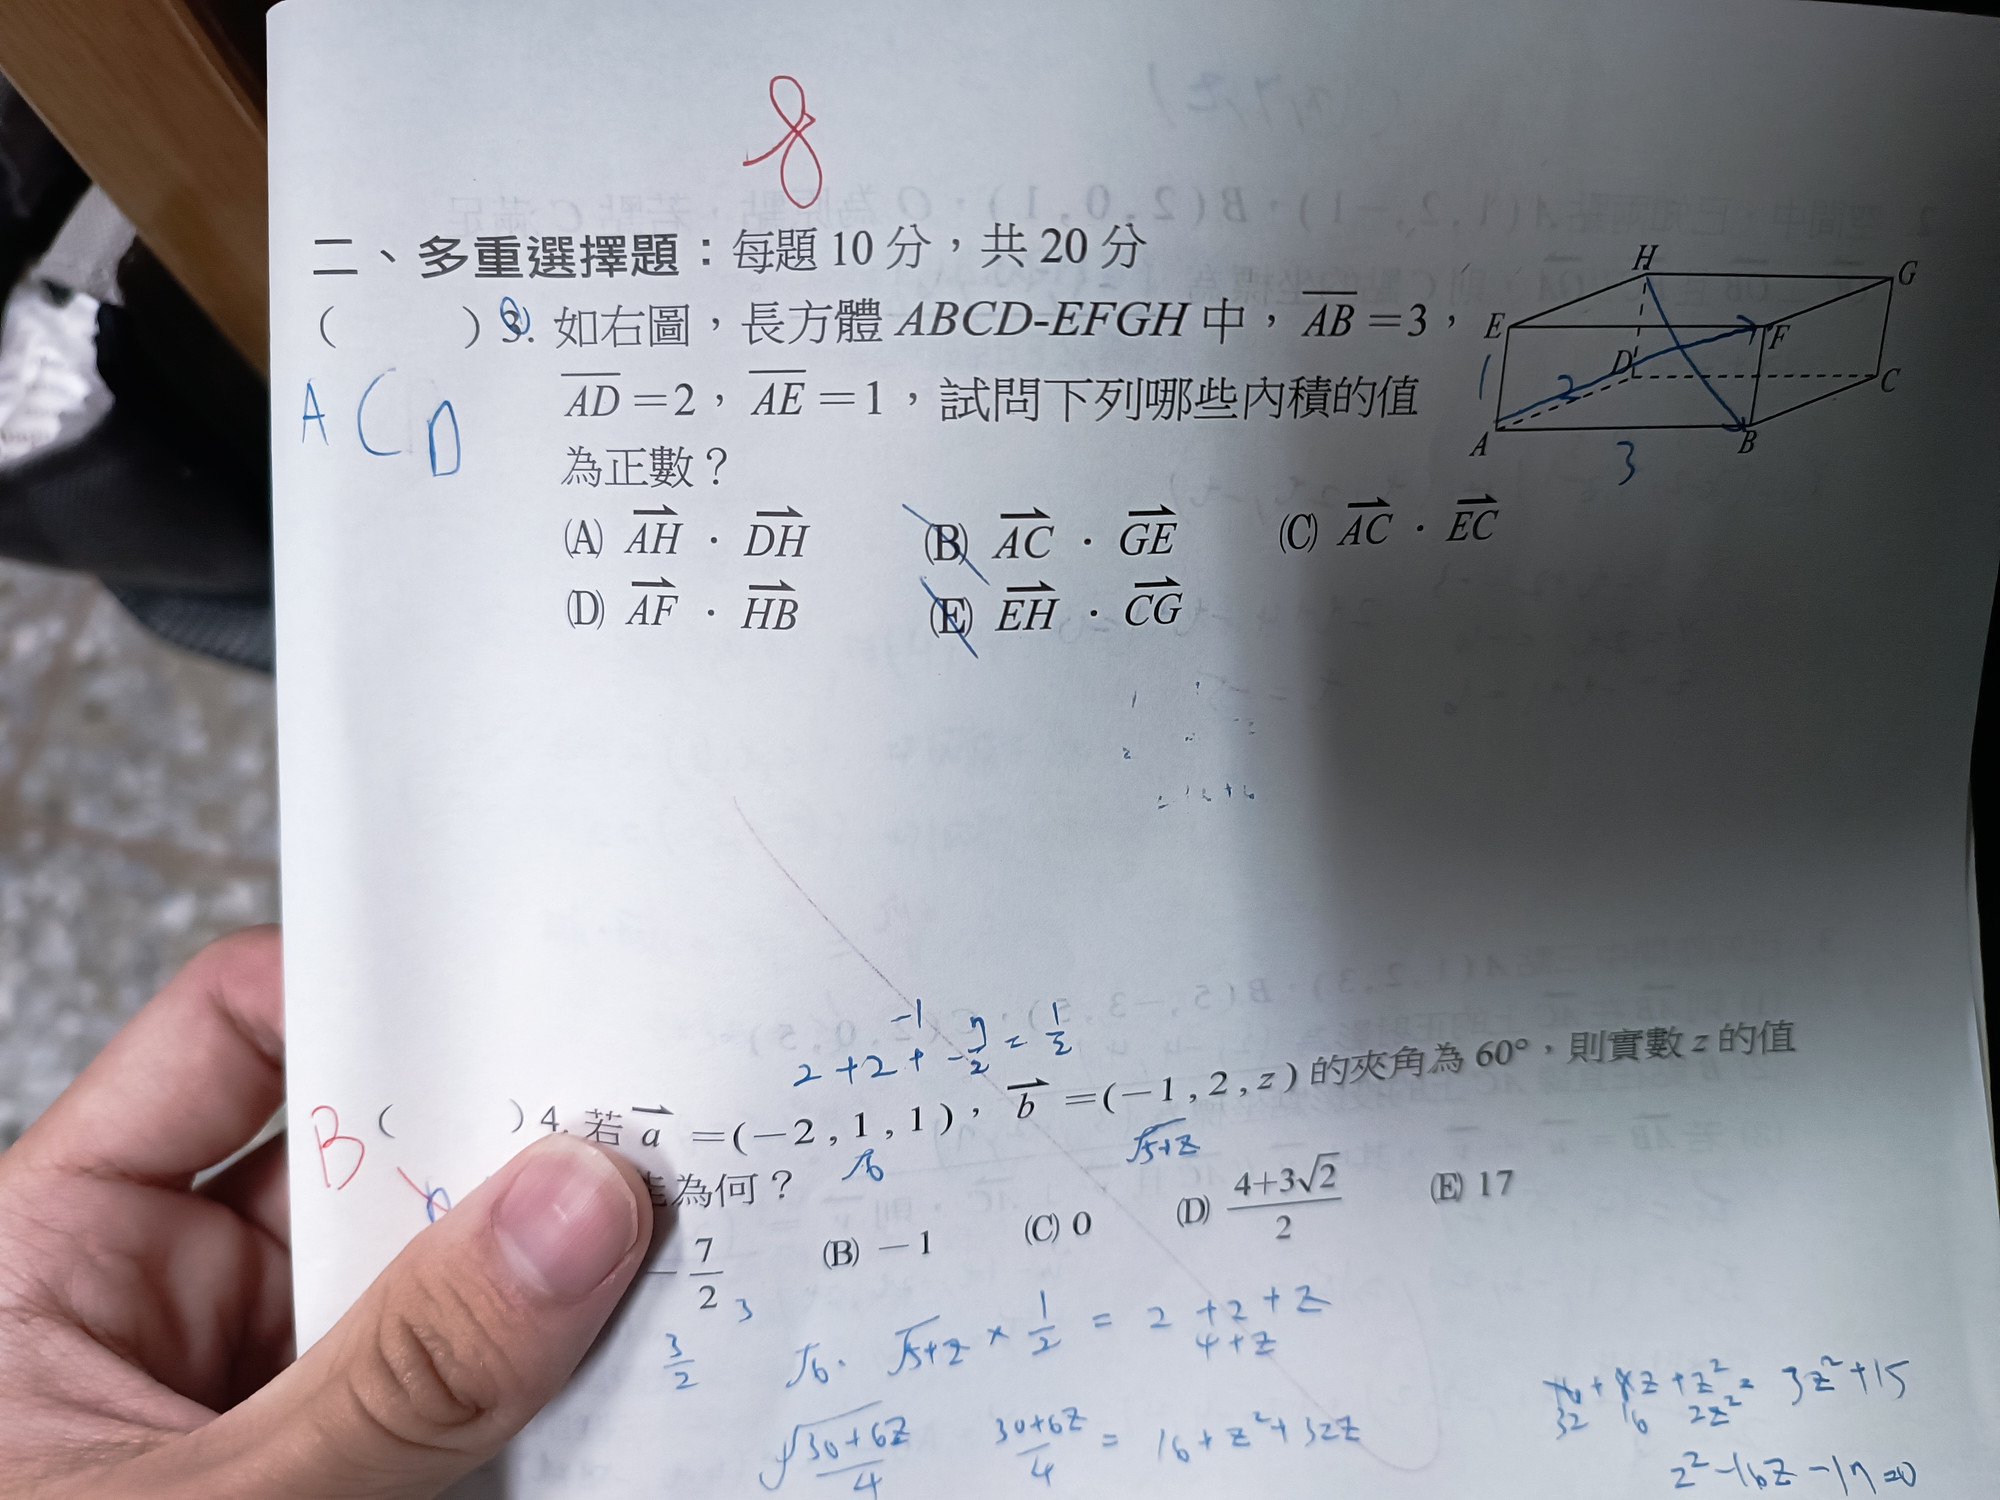 8
二、多重選擇題：每題 10 分，共 20 分
(　　) 3. 如右圖，長方體 ABCD-EFGH 中，AB = 3，
AD = 2，AE = 1，試問下列哪些內積的值
為正數？
A C D
(A) AH · DH (B) AC · GE (C) AC · EC
(D) AF · HB (E) EH · CG
H G
E F
D C
A B
1 2 3
2 + 2 + - 7/2 = 1/2
-1
(　　) 4. 若 a = (-2, 1, 1)，b = (-1, 2, z) 的夾角為 60°，則實數 z 的值
√6 √5+z
B
為何？
- 7/2 (B) -1 (C) 0 (D) (4+3√2)/2 (E) 17
3
3/2 √6 · √5+z × 1/2 = 2 + 2 + z
4 + z
√30+6z/4 30+6z/4 = 16 + z² + 32z
+ z² = 3z² + 15
32 16 2z²
z² - 16z - 17 = 0